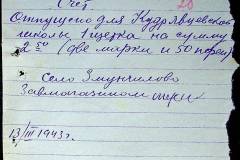 Счет
20
Отпущено для Кудрявцевской
школы 1 щетка на сумму
2 50 (две марки и 50 перей)
село Змунчилово
Завмагазином
13/III 1943 г.